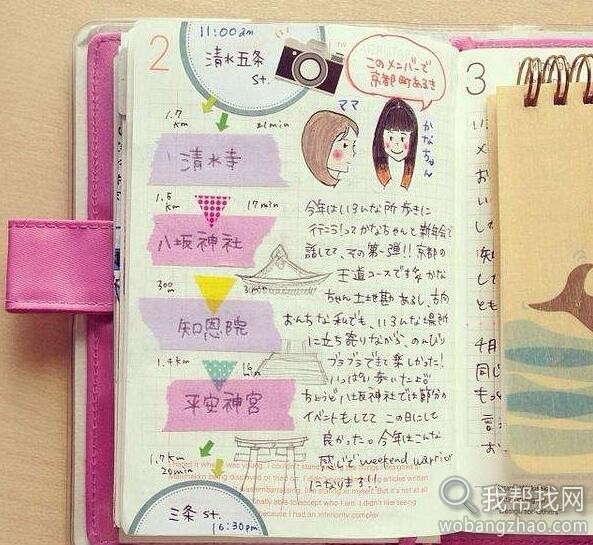 2
11:00am
清水五条
St.
このメンバーで
京都町あるき
ママ
かなちゃん
1.7
km
21min
清水寺
1.5
km
17min
八坂神社
300
m
知恩院
1.4km
16
min
平安神宮
1.7km
20min
三条 St.
16:30pm
今年はいろんな所歩きに
行こう!ってかなちゃんと新年会で
話してて、その第一弾!!京都の
王道コースです かな
ちゃん土地勘あるし、方向
おんちな私でも、いろんな場所
に立ち寄りながら、のんびり
ブラブラできて楽しかった!
いっぱい歩いた
ちょうど八坂神社では節分の
イベントもしてて この日にして
良かった。今年はこんな
感じで weekend warrior
になります!!
I hated it when I was young. I couldn't stand
being displayed or tried on.
embarrassing, like staring at myself. But it's not at all
finally able to accept who I am. I didn't like seeing
because I had an inferiority complex
3
4月
同じ
もっ
我帮找网
wobangzhao.com